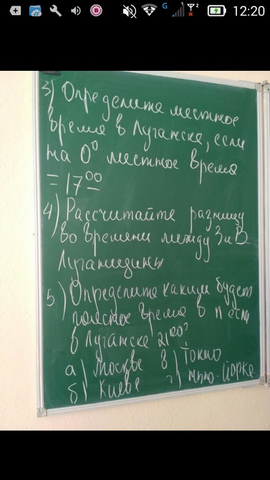 12:20
3) Определите местное
время в Луганске, если
на 0° местное время
= 17⁰⁰
4) Рассчитайте разницу
во времени между З и В
Луганщины
5) Определите каким будет
поясное время в п если
в Луганске 21⁰⁰?
а) Москве в) Токио
б) Киеве г) Нью-Йорке